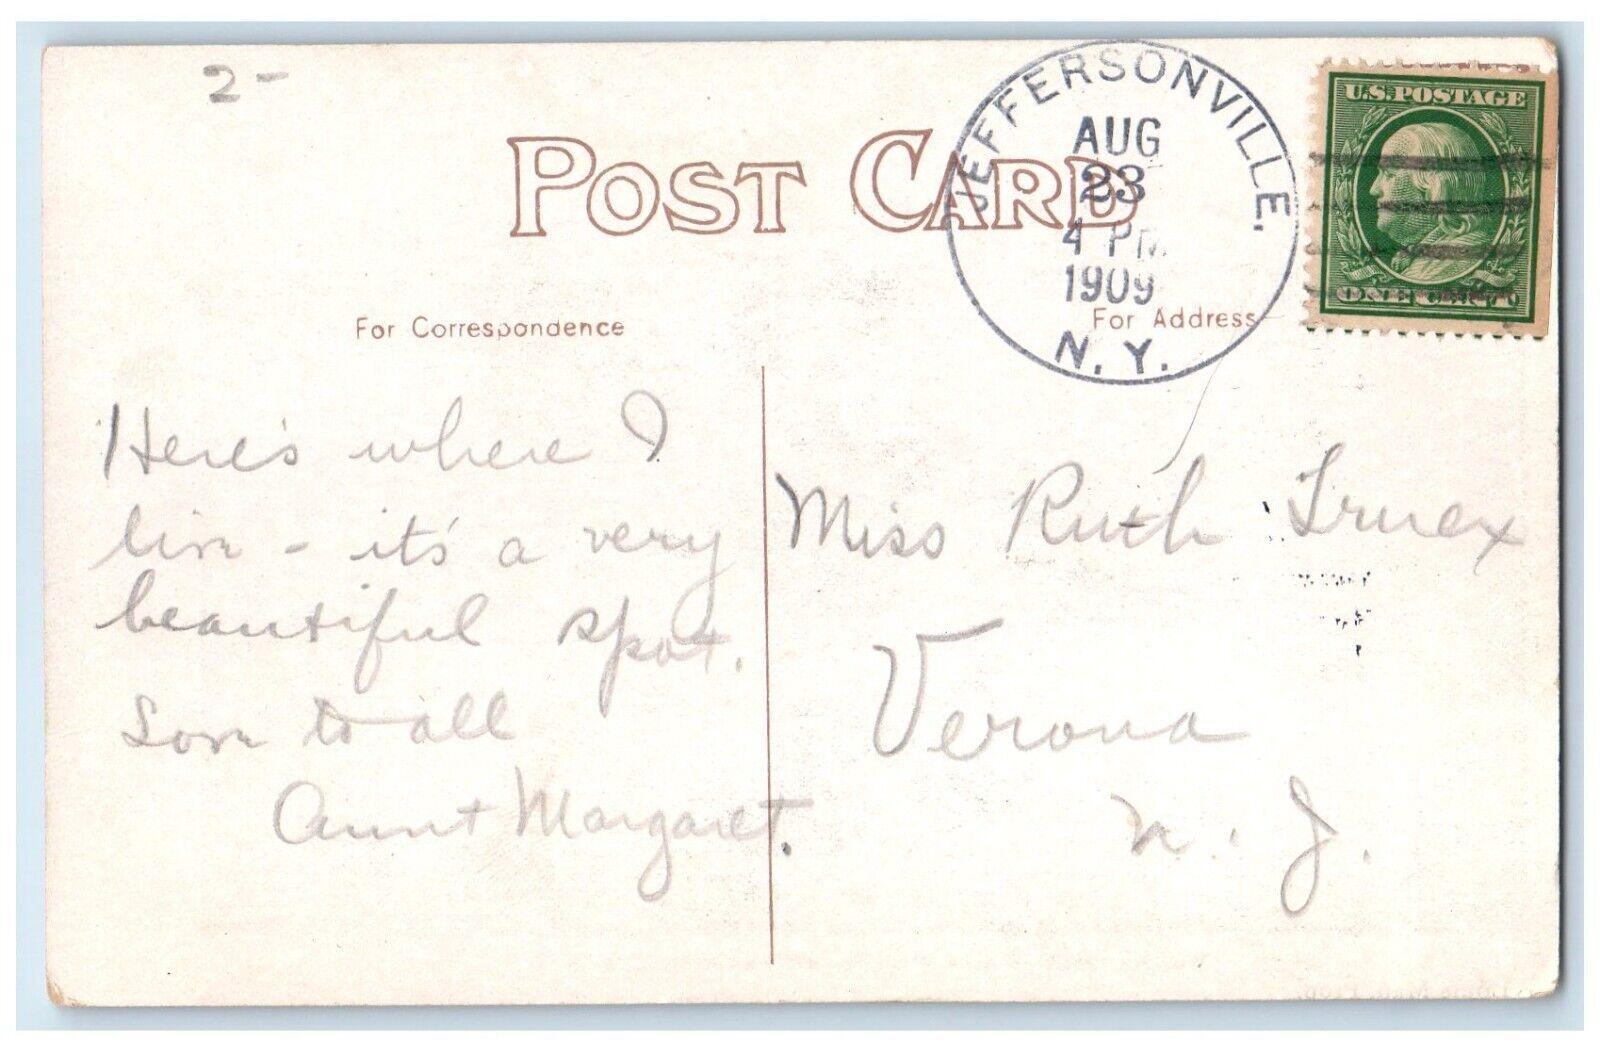 2-
POST CARD
JEFFERSONVILLE.
AUG
23
4 PM
1909
N. Y.
U.S. POSTAGE
ONE CENT
For Correspondence
For Address
Here's where I
live - it's a very
beautiful spot.
Love to all
Aunt Margaret.
Miss Ruth Truex
Verona
N. J.